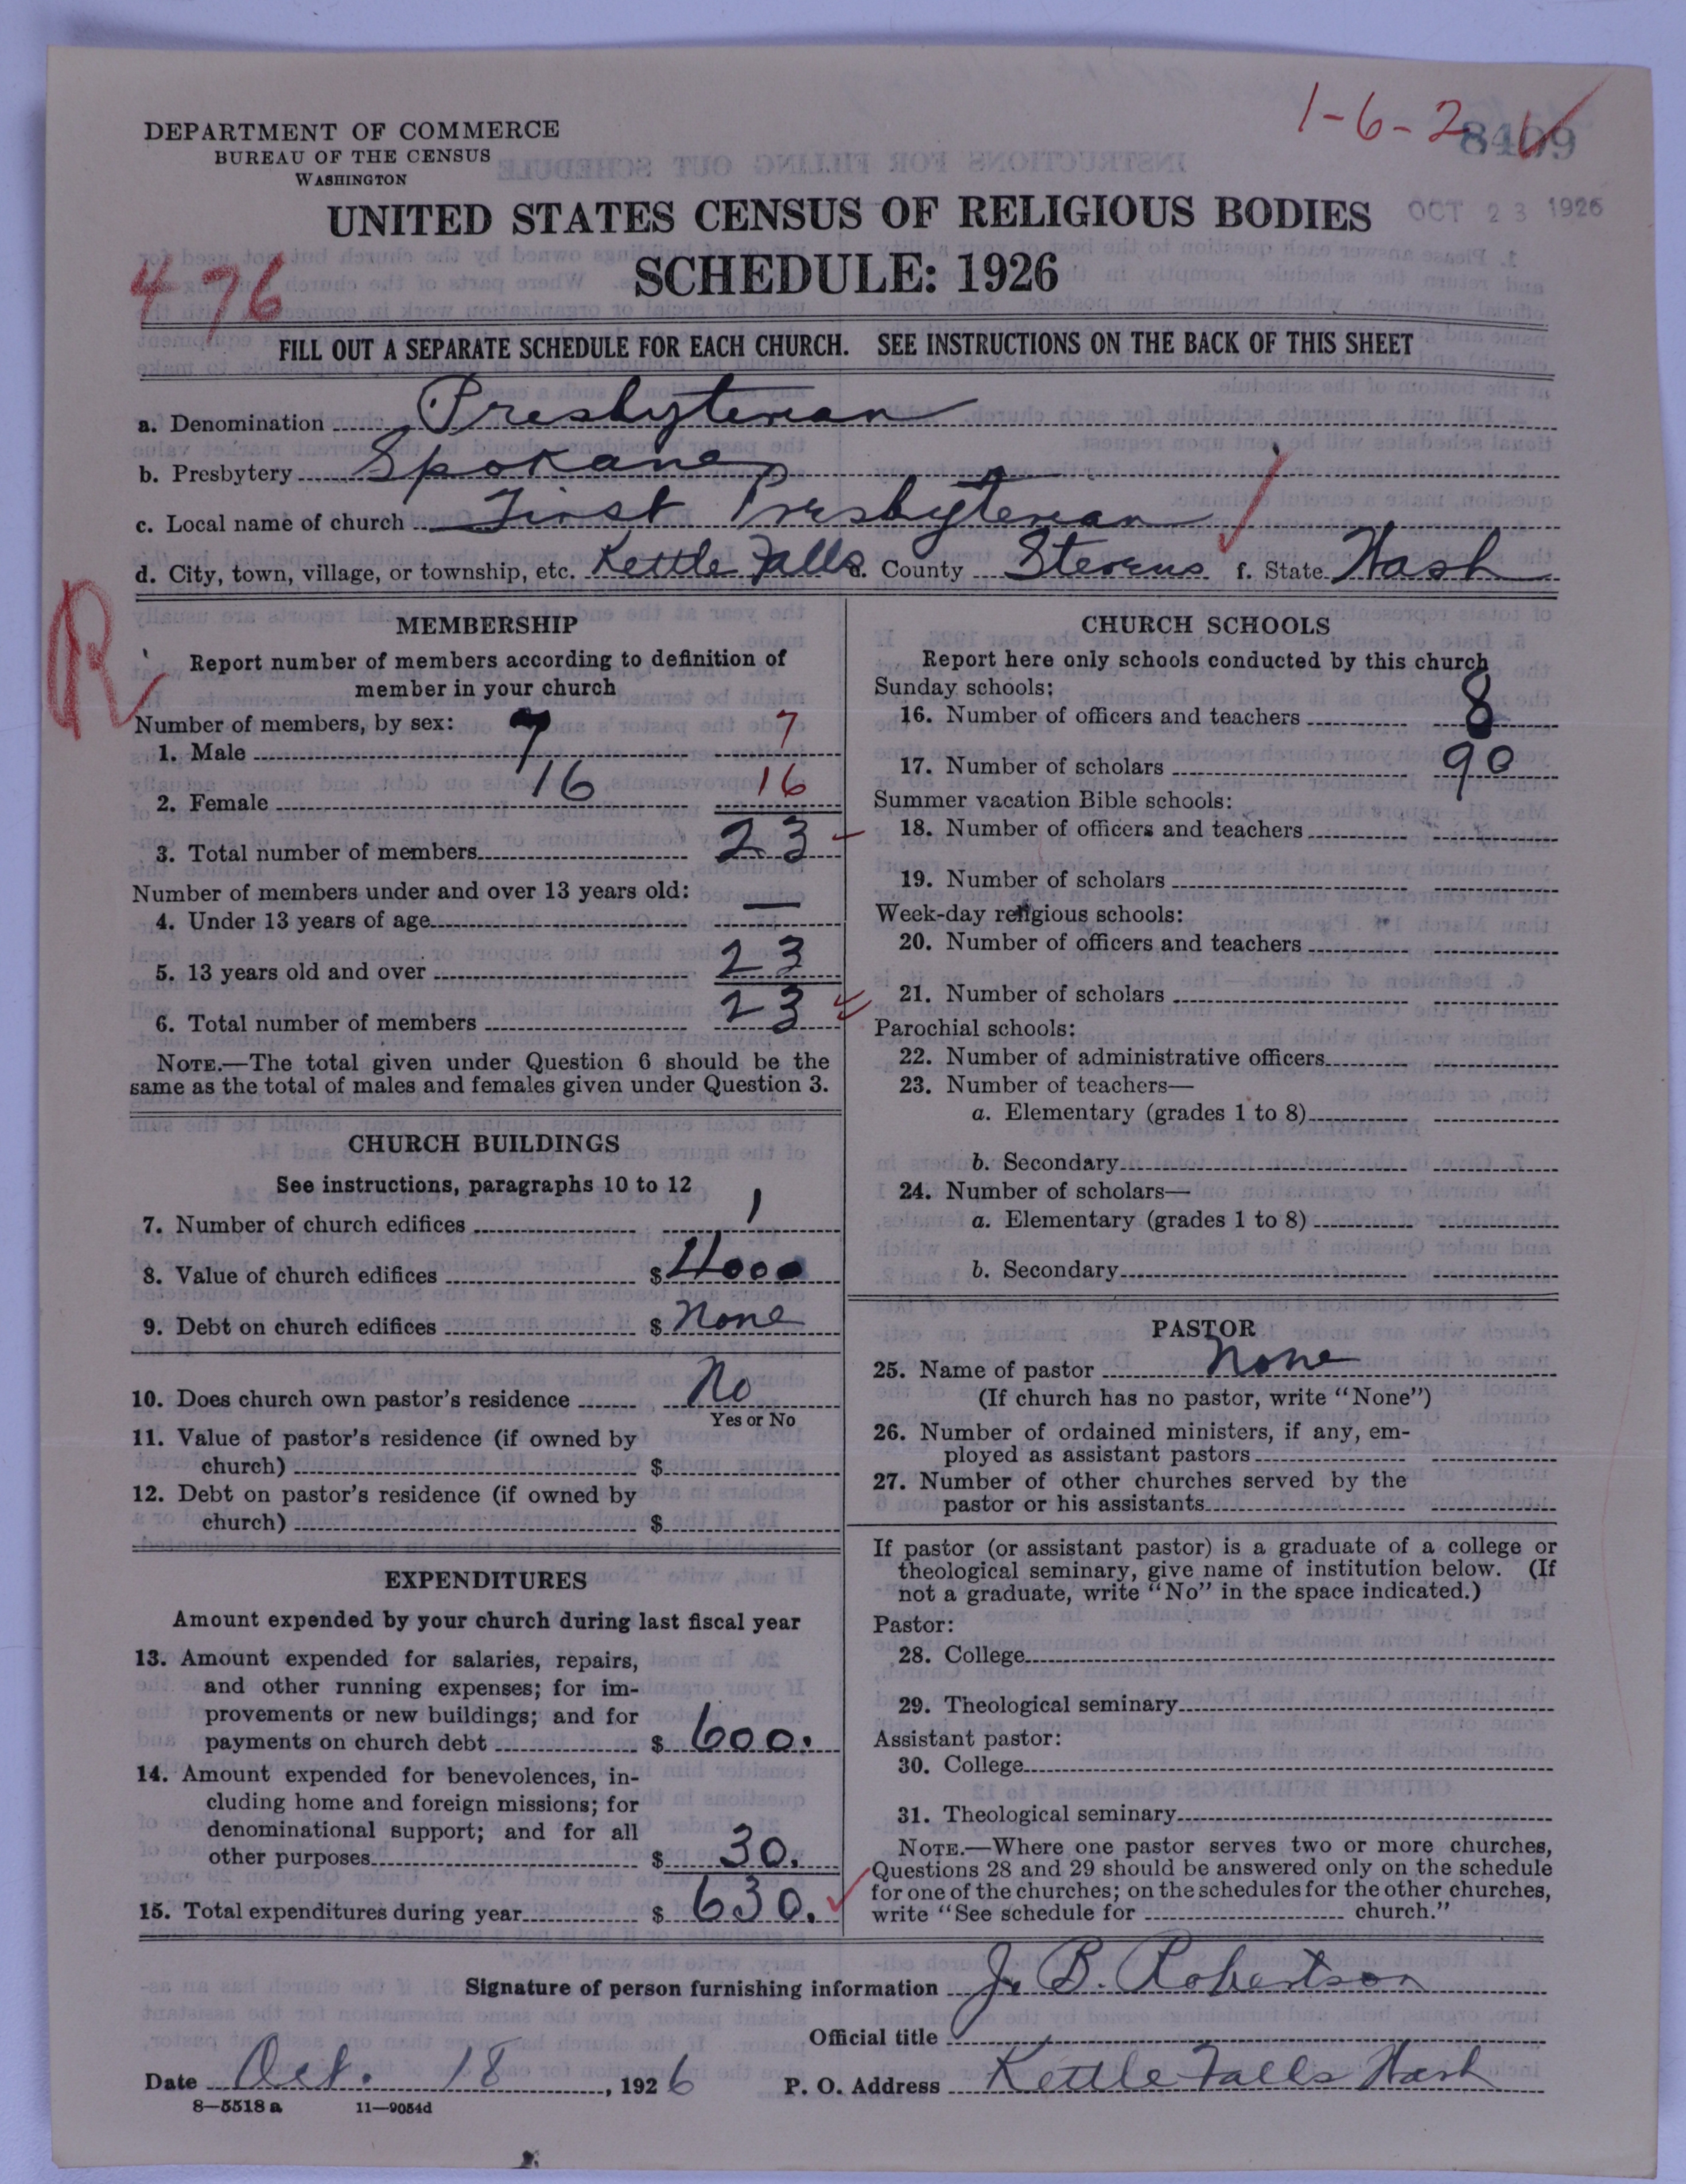 1-6-2
8409
DEPARTMENT OF COMMERCE
BUREAU OF THE CENSUS
WASHINGTON
UNITED STATES CENSUS OF RELIGIOUS BODIES
OCT 23 1926
SCHEDULE: 1926
476
FILL OUT A SEPARATE SCHEDULE FOR EACH CHURCH. SEE INSTRUCTIONS ON THE BACK OF THIS SHEET
a. Denomination Presbyterian
b. Presbytery Spokane
c. Local name of church First Presbyterian
d. City, town, village, or township, etc. Kettle Falls e. County Stevens f. State Wash
R
MEMBERSHIP
Report number of members according to definition of
member in your church
Number of members, by sex:
1. Male 7 7
2. Female 16 16
3. Total number of members 23
Number of members under and over 13 years old:
4. Under 13 years of age —
5. 13 years old and over 23
6. Total number of members 23
NOTE.—The total given under Question 6 should be the
same as the total of males and females given under Question 3.
CHURCH BUILDINGS
See instructions, paragraphs 10 to 12
7. Number of church edifices 1
8. Value of church edifices $4000
9. Debt on church edifices $ None
10. Does church own pastor's residence No
Yes or No
11. Value of pastor's residence (if owned by
church) $
12. Debt on pastor's residence (if owned by
church) $
EXPENDITURES
Amount expended by your church during last fiscal year
13. Amount expended for salaries, repairs,
and other running expenses; for im-
provements or new buildings; and for
payments on church debt $ 600.
14. Amount expended for benevolences, in-
cluding home and foreign missions; for
denominational support; and for all
other purposes $ 30.
15. Total expenditures during year $ 630.
CHURCH SCHOOLS
Report here only schools conducted by this church
Sunday schools:
16. Number of officers and teachers 8
17. Number of scholars 90
Summer vacation Bible schools:
18. Number of officers and teachers
19. Number of scholars
Week-day religious schools:
20. Number of officers and teachers
21. Number of scholars
Parochial schools:
22. Number of administrative officers
23. Number of teachers—
a. Elementary (grades 1 to 8)
b. Secondary
24. Number of scholars—
a. Elementary (grades 1 to 8)
b. Secondary
PASTOR
25. Name of pastor None
(If church has no pastor, write "None")
26. Number of ordained ministers, if any, em-
ployed as assistant pastors
27. Number of other churches served by the
pastor or his assistants
If pastor (or assistant pastor) is a graduate of a college or
theological seminary, give name of institution below. (If
not a graduate, write "No" in the space indicated.)
Pastor:
28. College
29. Theological seminary
Assistant pastor:
30. College
31. Theological seminary
NOTE.—Where one pastor serves two or more churches,
Questions 28 and 29 should be answered only on the schedule
for one of the churches; on the schedules for the other churches,
write "See schedule for church."
Signature of person furnishing information J. B. Robertson
Official title
Date Oct. 18, 1926 P. O. Address Kettle Falls Wash
8—5518 a 11—9054d